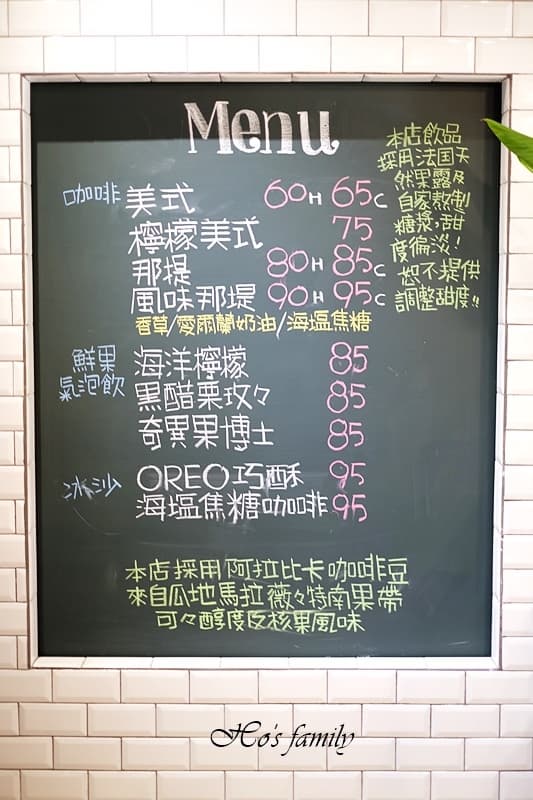 Menu
咖啡 美式 60H 65C
檸檬美式 75
那提 80H 85C
風味那提 90H 95C
香草/愛爾蘭奶油/海塩焦糖
鮮果氣泡飲
海洋檸檬 85
黑醋栗玫々 85
奇異果博士 85
冰沙 OREO巧酥 95
海塩焦糖咖啡 95
本店飲品
採用法国天
然果露及
自家熬製
糖漿,甜
度偏淡!
恕不提供
調整甜度!!
本店採用阿拉比卡咖啡豆
來自瓜地馬拉薇々特南果帶
可々醇度及核果風味
Ho's family